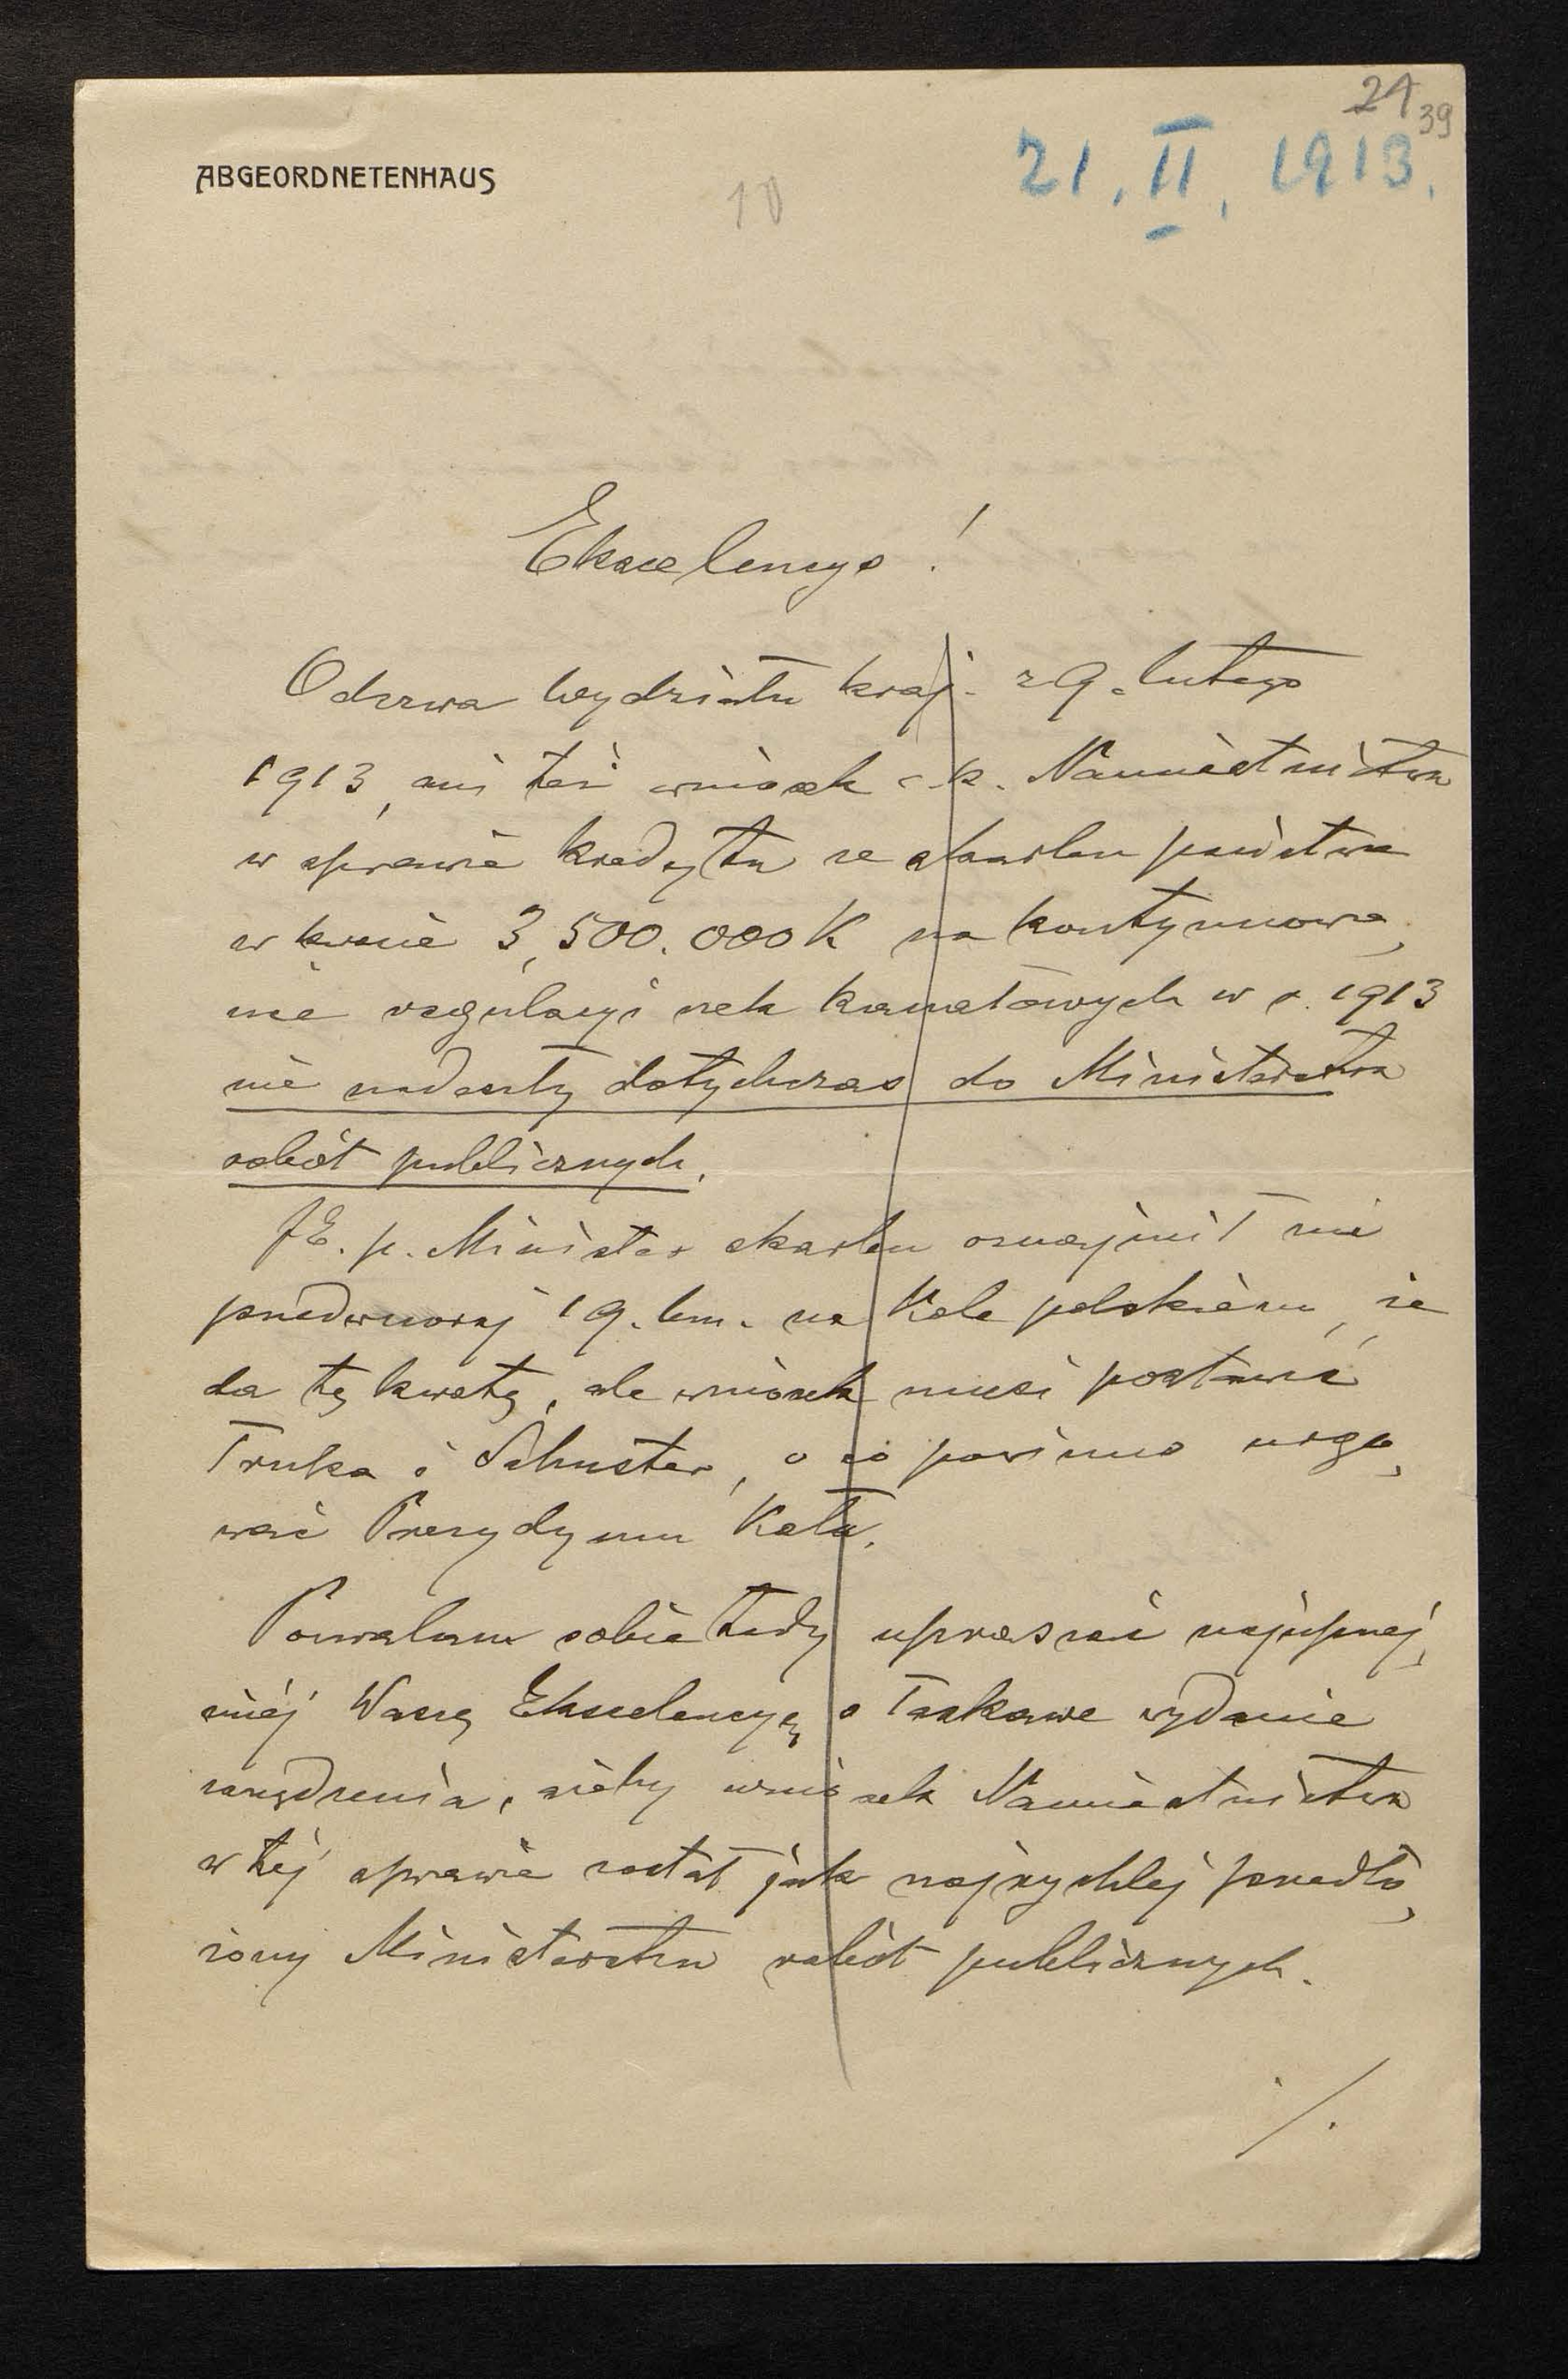 21 39
ABGEORDNETENHAUS
10
21. II. 1913.
Ekscelencyo!
Odezwa Wydziału kraj. z 9. lutego
1913, ani też wniosek c. k. Namiestnictwa
w sprawie kredytu ze skarbu państwa
w kwocie 3,500.000 K na kontynuowa-
nie regulacyi rzek kanałowych w r. 1913
nie nadeszły dotychczas do Ministerstwa
robót publicznych.
JE. p. Minister skarbu oznajmił mi
przedwczoraj 19. bm. na Kole polskiém, że
da tę kwotę, ale wniosek musi postawić
Trnka i Schuster, o co powinno urgo-
wać Prezydyum Koła.
Pozwalam sobie tedy upraszać najuprzej-
miéj Waszę Ekscelencyę o łaskawe wydanie
zarządzenia, ażeby wniosek Namiestnictwa
w téj sprawie został jak najrychlej przedło-
żony Ministerstwu robót publicznych.
./.